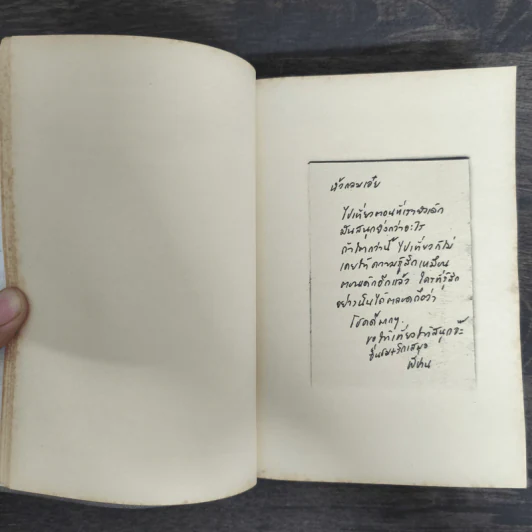 เจ้ากลมเอ๋ย
ไปเที่ยวตอนที่เรายังเด็ก
มันสนุกยิ่งกว่าอะไร
ถ้าโตกว่านี้ ไปเที่ยวก็ไม่
เคยให้ความรู้สึกเหมือน
ตอนเด็กอีกแล้ว ใครที่รู้สึก
อย่างนั้นได้ตลอดถือว่า
โชคดีมากๆ.
ขอให้เที่ยวให้สนุกจ้ะ
ชื่นชมรักเสมอ